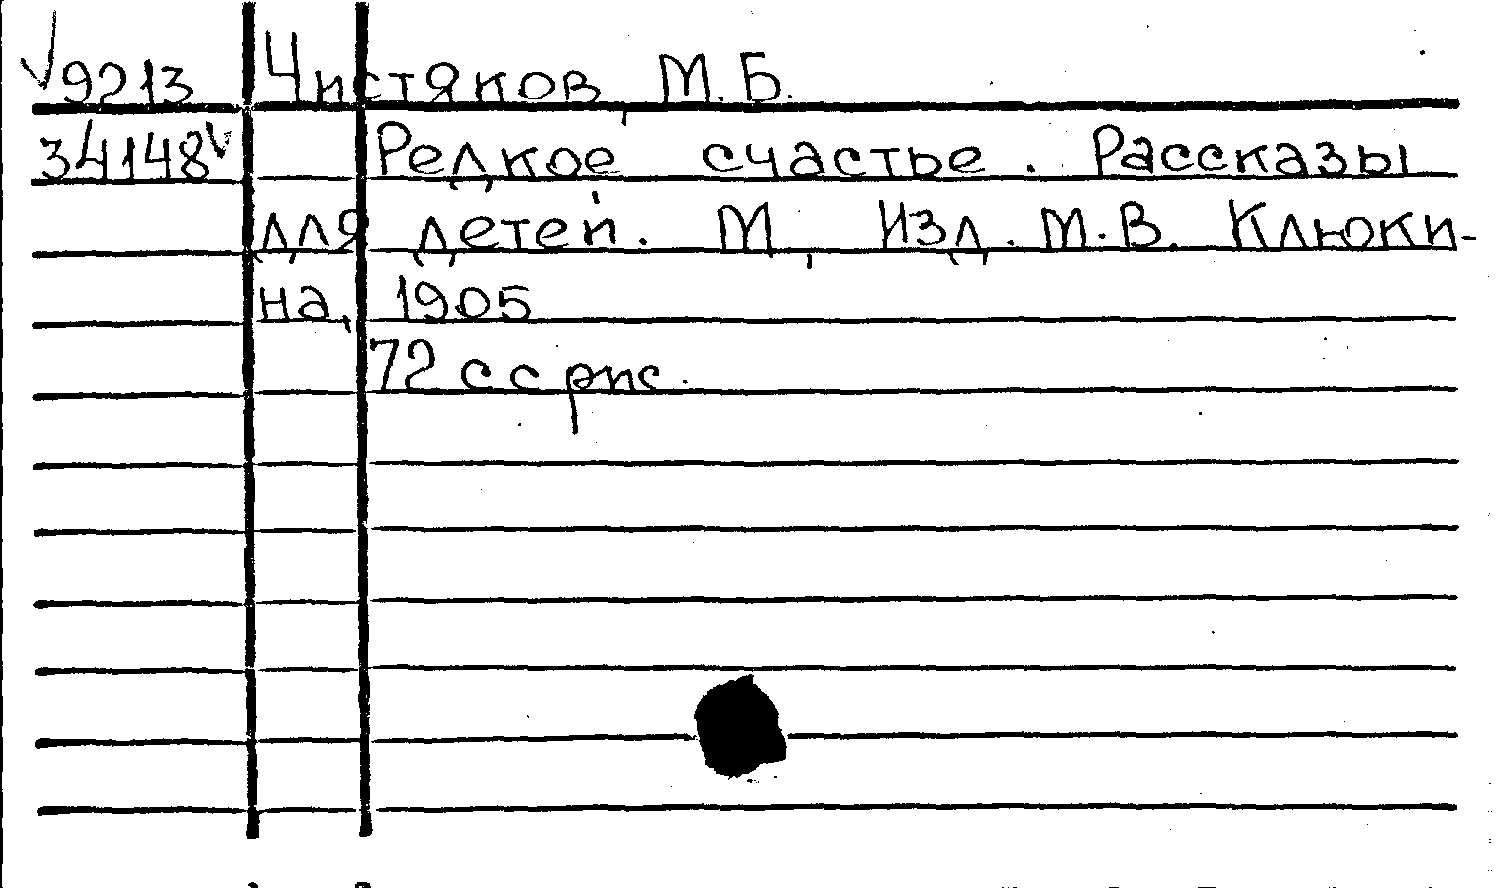 √9213 Чистяков, М. Б.
34148√ Редкое счастье. Рассказы
для детей. М, Изд. М.В. Клюки-
на, 1905
72 с с рис.